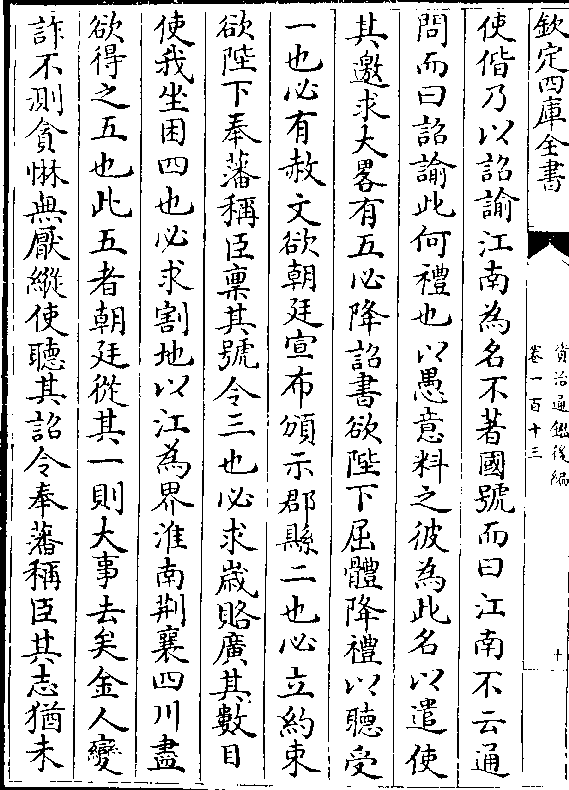 欽定四庫全書
資治通鑑後編
卷一百十三
十
使偕乃以詔諭江南為名不著國號而曰江南不云通
問而曰詔諭此何禮也以愚意料之彼為此名以遣使
其邀求大畧有五必降詔書欲陛下屈體降禮以聽受
一也必有赦文欲朝廷宣布頒示郡縣二也必立約束
欲陛下奉藩稱臣稟其號令三也必求嵗賂廣其數目
使我坐困四也必求割地以江為界淮南荆襄四川盡
欲得之五也此五者朝廷從其一則大事去矣金人變
詐不測貪惏無厭縱使聽其詔令奉藩稱臣其志猶未